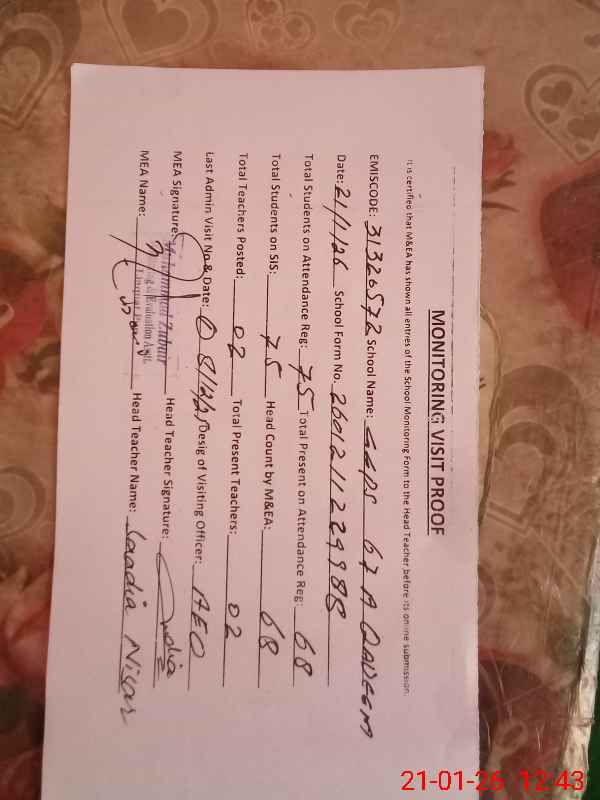 MONITORING VISIT PROOF
It is certified that M&EA has shown all entries of the School Monitoring Form to the Head Teacher before its online submission.
EMISCODE: 31320572 School Name: GGPS 67 A QADEEM
Date: 21/1/26 School Form No. 260121122998
Total Students on Attendance Reg: 75 Total Present on Attendance Reg: 68
Total Students on SIS: 75 Head Count by M&EA: 68
Total Teachers Posted: 02 Total Present Teachers: 02
Last Admin Visit No & Date: Desig of Visiting Officer: AEO
MEA Signature: Muhammad Zubair Head Teacher Signature: Sadia
Evaluation Asstt.
MEA Name: Head Teacher Name: Saadia Nisar
21-01-26 12:43